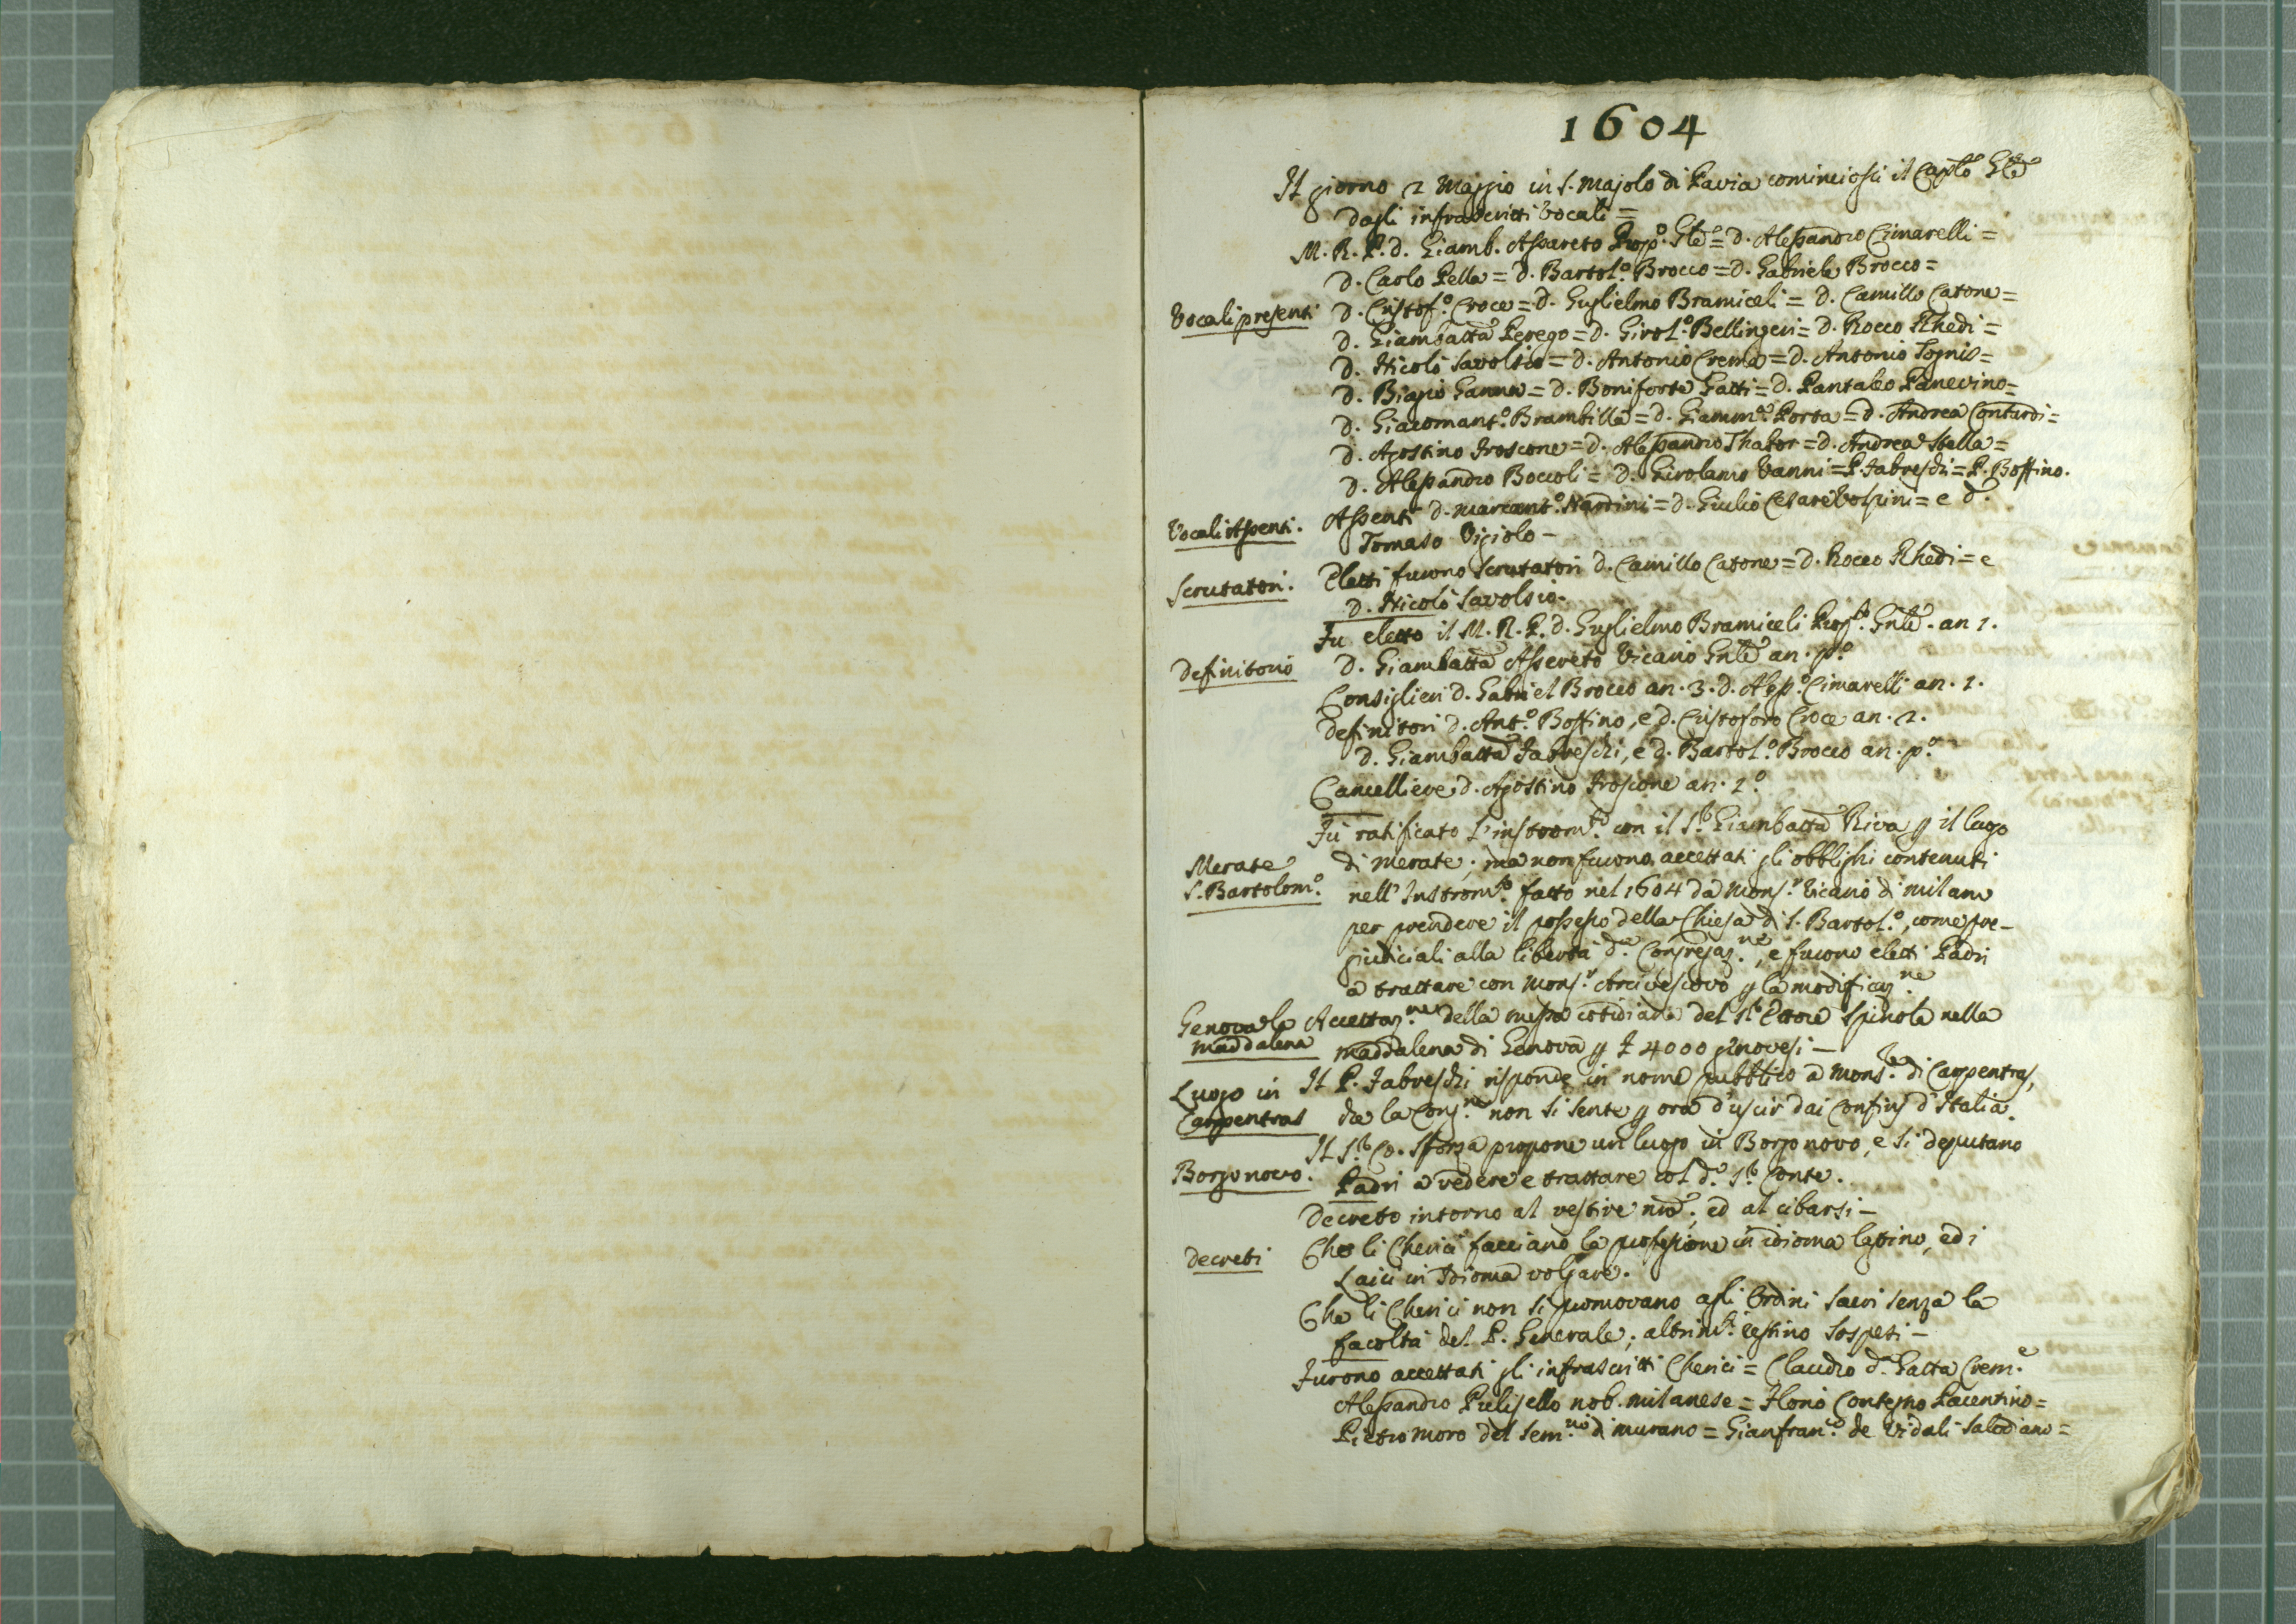 1604
Il giorno 2 Maggio in S. Majolo di Pavia cominciossi il Caplo Gle
dagli infrascritti Vocali =
M. R. P. d. Giamb. Assareto Prop.o Gle = d. Alessandro Cimarelli =
d. Carlo Pella = d. Bartol.o Brocco = d. Gabriele Brocco =
Vocali presenti d. Cristof.o Croce = d. Guglielmo Bramiceli = d. Camillo Catone =
d. Giambatta Perego = d. Girol.o Bellingeri = d. Rocco Rhedi =
d. Nicolò Savolsio = d. Antonio Crema = d. Antonio Tognis =
d. Biagio Ganna = d. Boniforte Gatti = d. Pantaleo Panevino =
d. Giacomant.o Brambilla = d. Giamm.a Porta = d. Andrea Contardi =
d. Agostino Froscone = d. Alessandro Thabor = d. Andrea Stella =
d. Alessandro Boccoli = d. Girolamo Vanni = P. Fabreschi = P. Boffino.
Vocali Assenti. Assenti d. Marcant.o Nardini = d. Giulio Cesare Volpini = e d.
Tomaso Vigiolo -
Scrutatori. Eletti furono Scrutatori d. Camillo Catone = d. Rocco Rhedi = e
d. Nicolò Savolsio.
Fu eletto il M. R. P. d. Guglielmo Bramiceli Prop.o Gnle. an 1.
Definitorio d. Giambatta Assereto Vicario Gnle an. p.o
Consiglieri d. Gabriel Brocco an. 3. d. Aless.o Cimarelli an. 1.
Definitori d. Ant.o Boffino, e d. Cristoforo Croce an. 2.
d. Giambatta Fabreschi, e d. Bartol.o Brocco an. p.o
Cancelliere d. Agostino Froscone an. 2.o
Fu ratificato l'instrom.to con il S.r Giambatta Riva p il luogo
Merate di Merate; ma non furono accettati gli obblighi contenuti
S. Bartolom.o nell'Instrom.to fatto nel 1604 da Mons.r Vicario di Milano
per prendere il possesso della Chiesa di S. Bartol.o, come pre-
giudiciali alla libertà d.a Congregaz.ne, e furono eletti Padri
a trattare con Mons.r Arcivescovo p la modificaz.ne
Genova la Accettaz.ne della messa cotidiana del S.r Ettore Spinola nella
Maddalena Maddalena di Genova p £ 4000 genovesi -
Luogo in Il P. Fabreschi risponde in nome pubblico a Mons.r di Carpentras,
Carpentras che la Cong.ne non si sente p ora d'uscir dai Confini d'Italia.
Il S.r Co. Sforza propone un luogo in Borgo novo, e si deputano
Borgonovo. Padri a vedere e trattare col d.o S.r Conte.
Decreto intorno al vestire nro, ed al cibarsi -
Decreti Che li Cherici facciano la professione in idioma lattino, ed i
Laici in Idioma volgare.
Che li Cherici non si promovano agli Ordini Sacri senza la
facoltà del P. Generale; altrim.ti restino Sospesi -
Furono accettati gli infrascritti Cherici = Claudio d.a Gatta Crem.e
Alessandro Pulisello nob. milanese = Florio Pacentino =
Pietro Moro del Sem.rio di Murano = Gianfran.co de Vidali Salodiano =